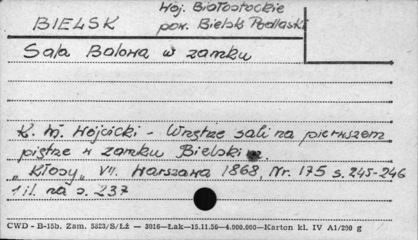 Woj. Białostockie
BIELSK pow. Bielsk Podlaski
Sala Balowa w zamku
K. W. Wójcicki - Wnętrze sali na pierwszem
piętrze w zamku Bielski
„Kłosy„ VII. Warszawa 1868, Nr. 175 s. 245-246
1 il. na s. 237
CWD - B-15b. Zam. 5823/S/Łż — 3016—Łak—15.11.50—4.000.000—Karton kl. IV A1/250 g